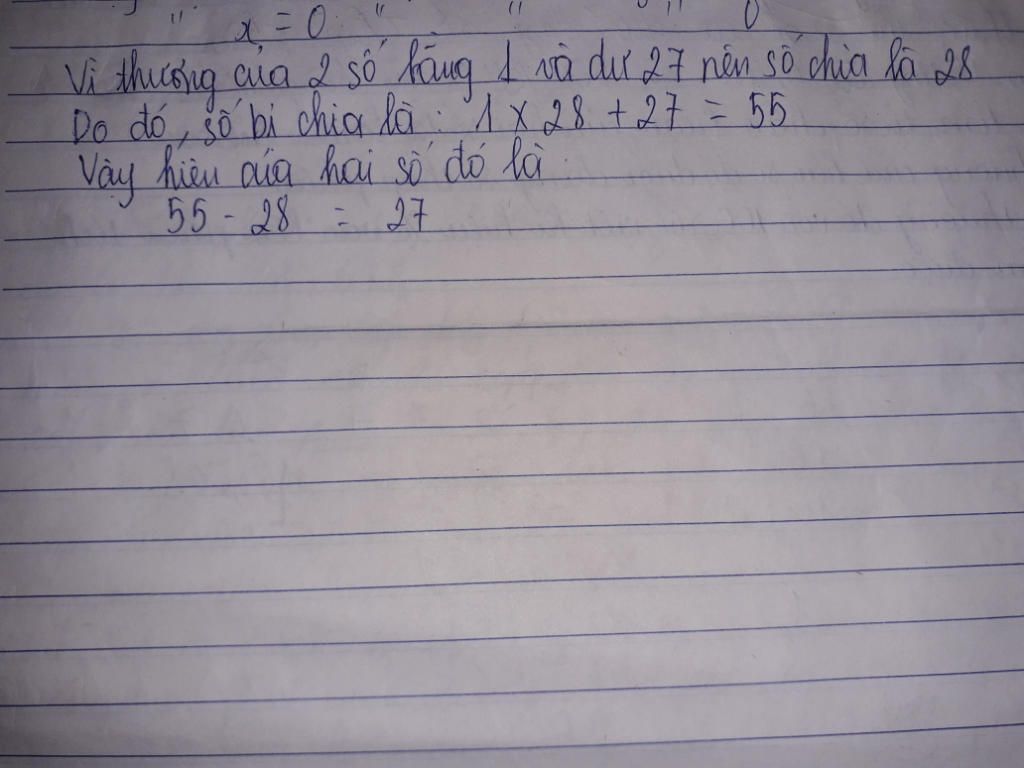 " x = 0 " " " 0
Vì thương của 2 số bằng 1 và dư 27 nên số chia là 28
Do đó, số bị chia là: 1 x 28 + 27 = 55
Vậy hiệu của hai số đó là:
55 - 28 = 27